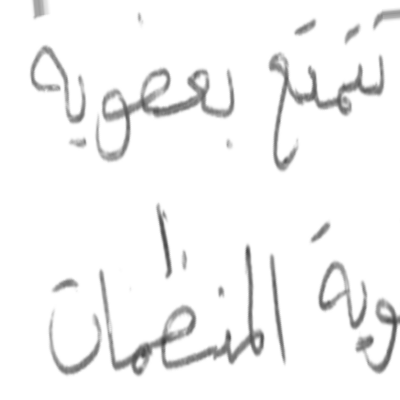 تتمتع بعضوية
وية المنظمات